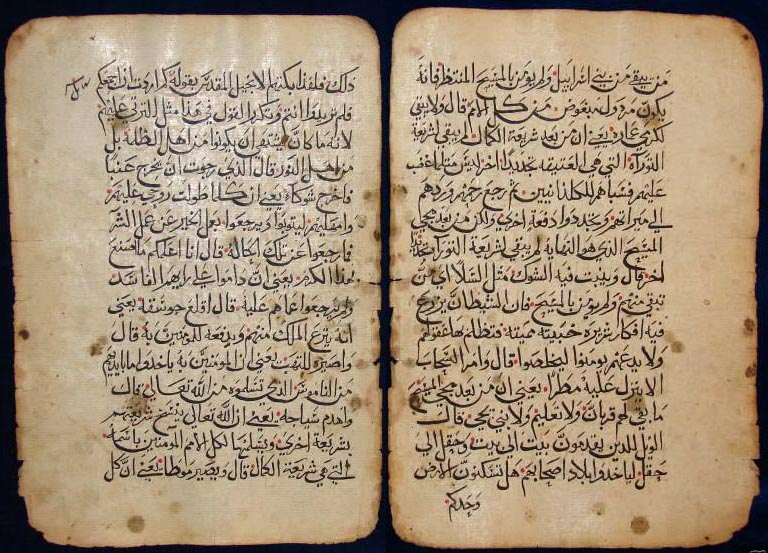 ذلك فلهذا بكتهم الانجيل المقدس بقوله كم اردت ان اجمعكم
فلم تريدوا انتم وتكرار القول في هذا مثل عليهم
لانه ما كان يشتهي ان يكونوا من اهل الظلمة بل
من اهل النور قال الذي رجوت ان يخرج عنبا
فاخرج شوكا يعني ان كلما طولت روحي عليهم
وامهلتهم ليتوبوا ويرجعوا بعمل الخير عن عمل الشر
فما رجعوا عن تلك الحالة قال انا اعلمكم ما اصنع
بهذا الكرم يعني ان داموا على رايهم الفاسد
ولم يرجعوا عما هم عليه قال اقلع يعني
انه ينزع الملك منهم ويدفعه للمومنين به قال
واصيره للنهب يعني ان المومنين به ياخدوا ما بايديهم
من الناموس الذي تسلموه من الله تعالى قال
واهدم سياجه يعني ان الله تعالى ينسخ شريعتهم
بشريعة اخرى ويسلمها لكل الامم المومنين باسمه
التي هي شريعة الكمال قال ويصير موطا يعني ان كل
من يبقى من بني اسرايل ولم يومن بالمسيح المنتظر فانه
يكون مردول مبغوض من كل الامم قال ولا يبقى
لكرمي عمارة يعني ان من بعد شريعة الكمال لم يبقى لشريعة
التوراة التي هي العتيقة تجديدا اخر ليس مثل ما غضب
عليهم فسباهم للكلدانيين ثم رجع رحمهم وردهم
الى ميراثهم وتجددوا دفعة اخرى ولكن من بعد مجي
المسيح الذي هو النهاية لم يبقى لشريعة التوراة تجديد
اخر قال وينبت فيه الشوك مثل السلا اي من
تبقى منهم ولم يومن بالمسيح فان الشيطان يزرع
فيه افكار شريرة خبيثة مميتة فتظلم بها عقولهم
ولا يدعهم يومنوا ليخلصوا قال وامر السحاب
الا ينزل عليه مطرا يعني ان من بعد مجي المسيح
ما بقي لهم قربان ولا تعليم ولا نبي يجي قال
الويل للدين يقدموا بيت الى بيت وحقل الى
حقل لياخدوا بلاد اصحابهم هل تسكنون الارض
وحدكم